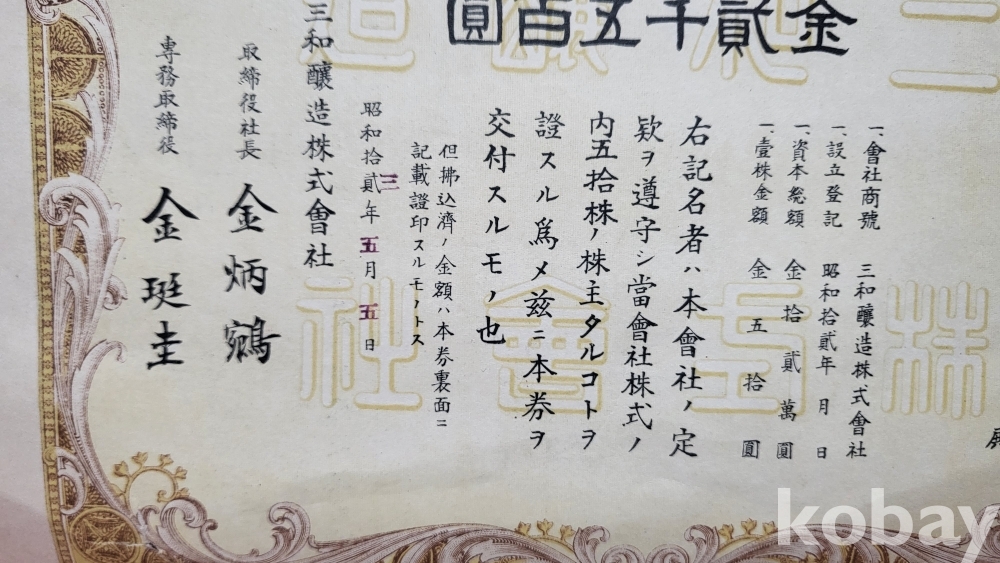 金貳千五百圓
一、會社商號 三和釀造株式會社
一、設立登記 昭和拾貳年 月 日
一、資本總額 金拾貳萬圓
一、壹株金額 金五拾圓
右記名者ハ本會社ノ定
欵ヲ遵守シ當會社株式ノ
內五拾株ノ株主タルコトヲ
證スル爲メ玆ニ本券ヲ
交付スルモノ也
但拂込濟ノ金額ハ本券裏面ニ
記載證印スルモノトス
昭和拾貳三年五月五日
三和釀造株式會社
取締役社長 金炳鶴
專務取締役 金珽圭
株式會社
kobay